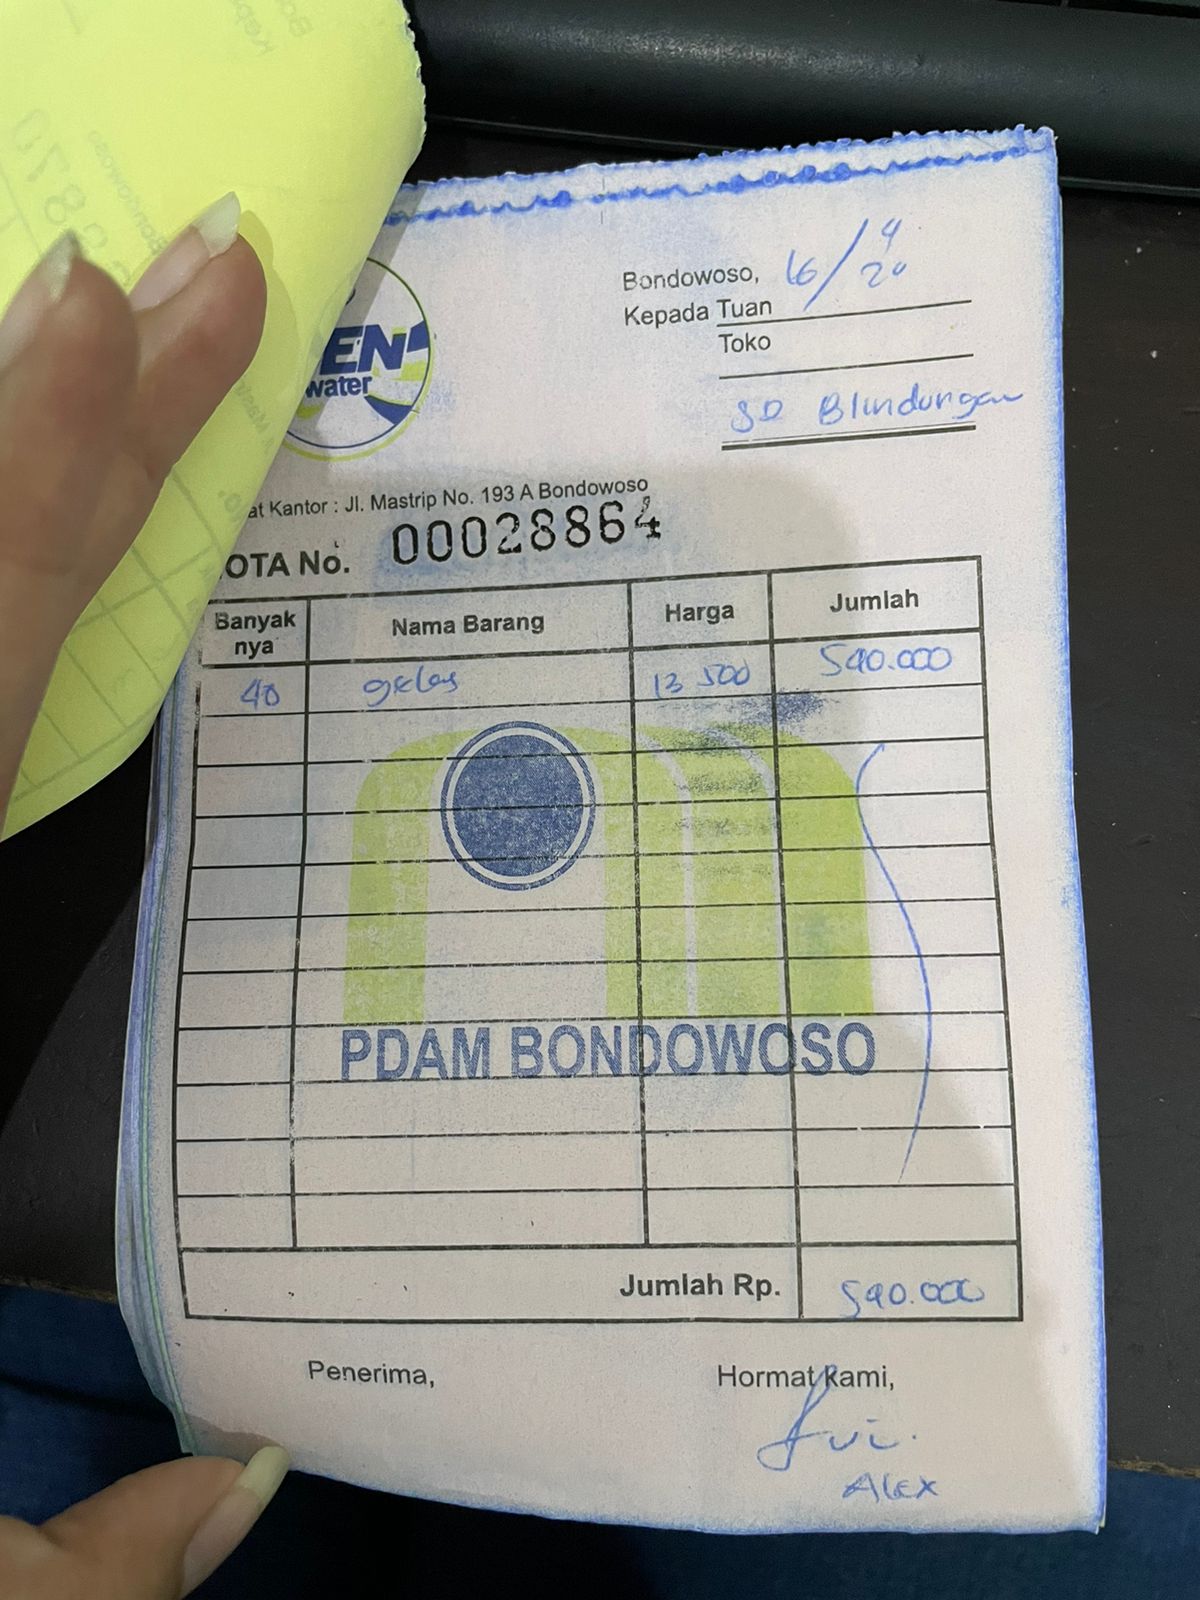 Bondowoso, 16/4 20
Kepada Tuan
Toko
SD Blindungan
EN
water
at Kantor : Jl. Mastrip No. 193 A Bondowoso
OTA No. 00028864
Banyak nya Nama Barang Harga Jumlah
40 gelas 13 500 540.000
PDAM BONDOWOSO
Jumlah Rp. 540.000
Penerima, Hormat kami,
Alex